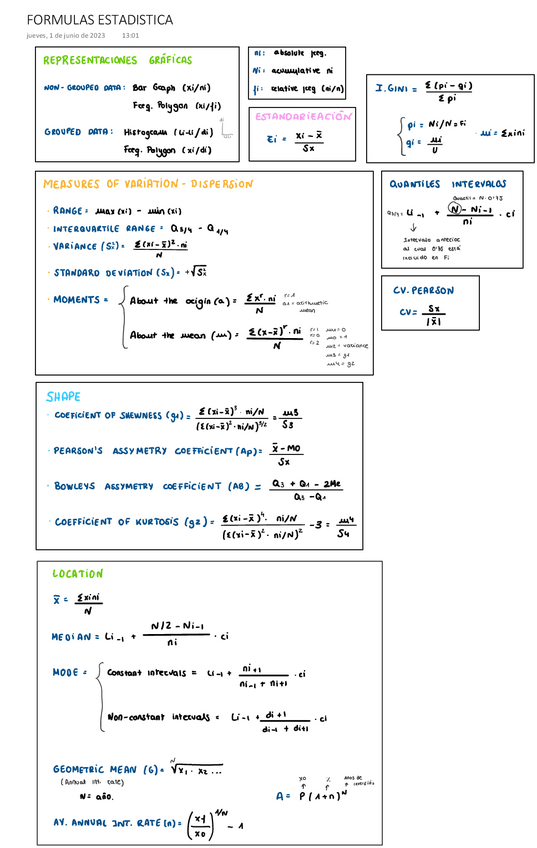 FORMULAS ESTADISTICA
jueves, 1 de junio de 2023 13:01
REPRESENTACIONES GRÁFICAS
NON-GROUPED DATA: Bar Graph (xi/ni)
Freq. Polygon (xi/fi)
GROUPED DATA: Histogram (Li-Li/di)
Freq. Polygon (xi/di)
ni: absolute freq.
Ni: acumulative ni
fi: relative freq (ni/n)
ESTANDARIZACIÓN
Zi = (xi - x̄) / Sx
I. GINI = Σ(pi - qi) / Σpi
pi = Ni/N = Fi
qi = ui/U
· ui = Σxini
MEASURES OF VARIATION - DISPERSION
· RANGE = max(xi) - min(xi)
· INTERQUARTILE RANGE = Q3/4 - Q1/4
· VARIANCE (Sx²) = Σ(xi - x̄)² · ni / N
· STANDARD DEVIATION (Sx) = +√Sx²
· MOMENTS =
About the origin (a) = Σxʳ · ni / N
r=1
a1 = arithmetic
mean
About the mean (m) = Σ(x - x̄)ʳ · ni / N
r=1 m1=0
r=0 m0=1
r=2 m2 = variance
m3 = g1
m4 = g2
QUANTILES INTERVALOS
= Li-1 + (N - Ni-1) / ni · ci
Intervalo anterior
al cual 0'75 está
incluido en Fi
CV. PEARSON
CV = Sx / |x̄|
SHAPE
· COEFICIENT OF SKEWNESS (g1) = Σ(xi - x̄)³ · ni/N / (Σ(xi - x̄)² · ni/N)^3/2 = m3 / S3
· PEARSON'S ASSYMETRY COEFFICIENT (Ap) = (x̄ - MO) / Sx
· BOWLEYS ASSYMETRY COEFFICIENT (AB) = (Q3 + Q1 - 2Me) / (Q3 - Q1)
· COEFFICIENT OF KURTOSIS (g2) = Σ(xi - x̄)⁴ · ni/N / (Σ(xi - x̄)² · ni/N)² - 3 = m4 / S4
LOCATION
x̄ = Σxini / N
MEDIAN = Li-1 + (N/2 - Ni-1) / ni · ci
MODE =
Constant intervals = Li-1 + ni+1 / (ni-1 + ni+1) · ci
Non-constant intervals = Li-1 + di+1 / (di-1 + di+1) · ci
GEOMETRIC MEAN (G) = ᴺ√x1 · x2 ...
(Annual int. rate)
N = año.
x0 % años de
A = P(1+n)ᴺ
AV. ANNUAL INT. RATE (n) = (xf / x0)^1/N - 1